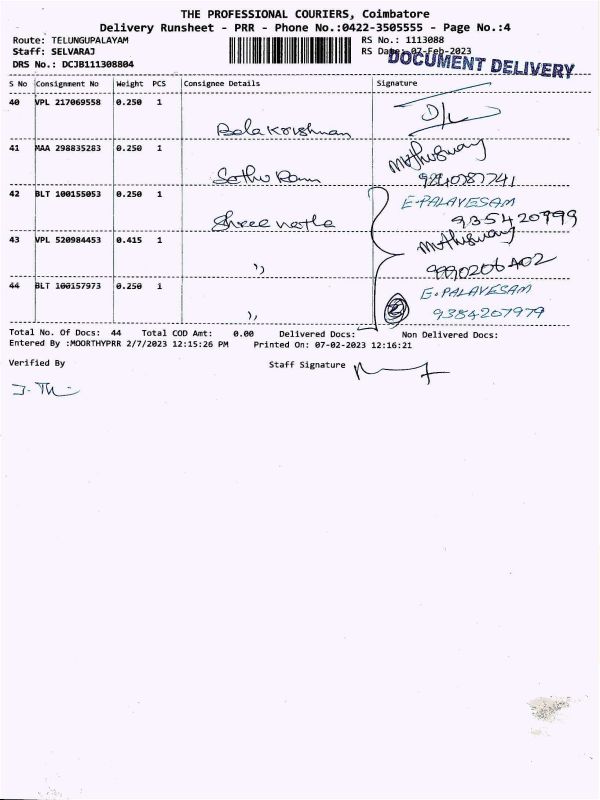 THE PROFESSIONAL COURIERS, Coimbatore
Delivery Runsheet - PRR - Phone No.:0422-3505555 - Page No.:4
Route: TELUNGUPALAYAM RS No.: 1113088
Staff: SELVARAJ RS Date: 07-Feb-2023
DOCUMENT DELIVERY
DRS No.: DCJB111308804
S No Consignment No Weight PCS Consignee Details Signature
40 VPL 217069558 0.250 1
Bala Krishnan
41 MAA 298835283 0.250 1
Sethu Ram
42 BLT 100155053 0.250 1 E-PALAVESAM
Shree netha
43 VPL 520984453 0.415 1
")
44 BLT 100157973 0.250 1 E.PALAVESAM
"), 9384207979
Total No. Of Docs: 44 Total COD Amt: 0.00 Delivered Docs: Non Delivered Docs:
Entered By :MOORTHYPRR 2/7/2023 12:15:26 PM Printed On: 07-02-2023 12:16:21
Verified By Staff Signature